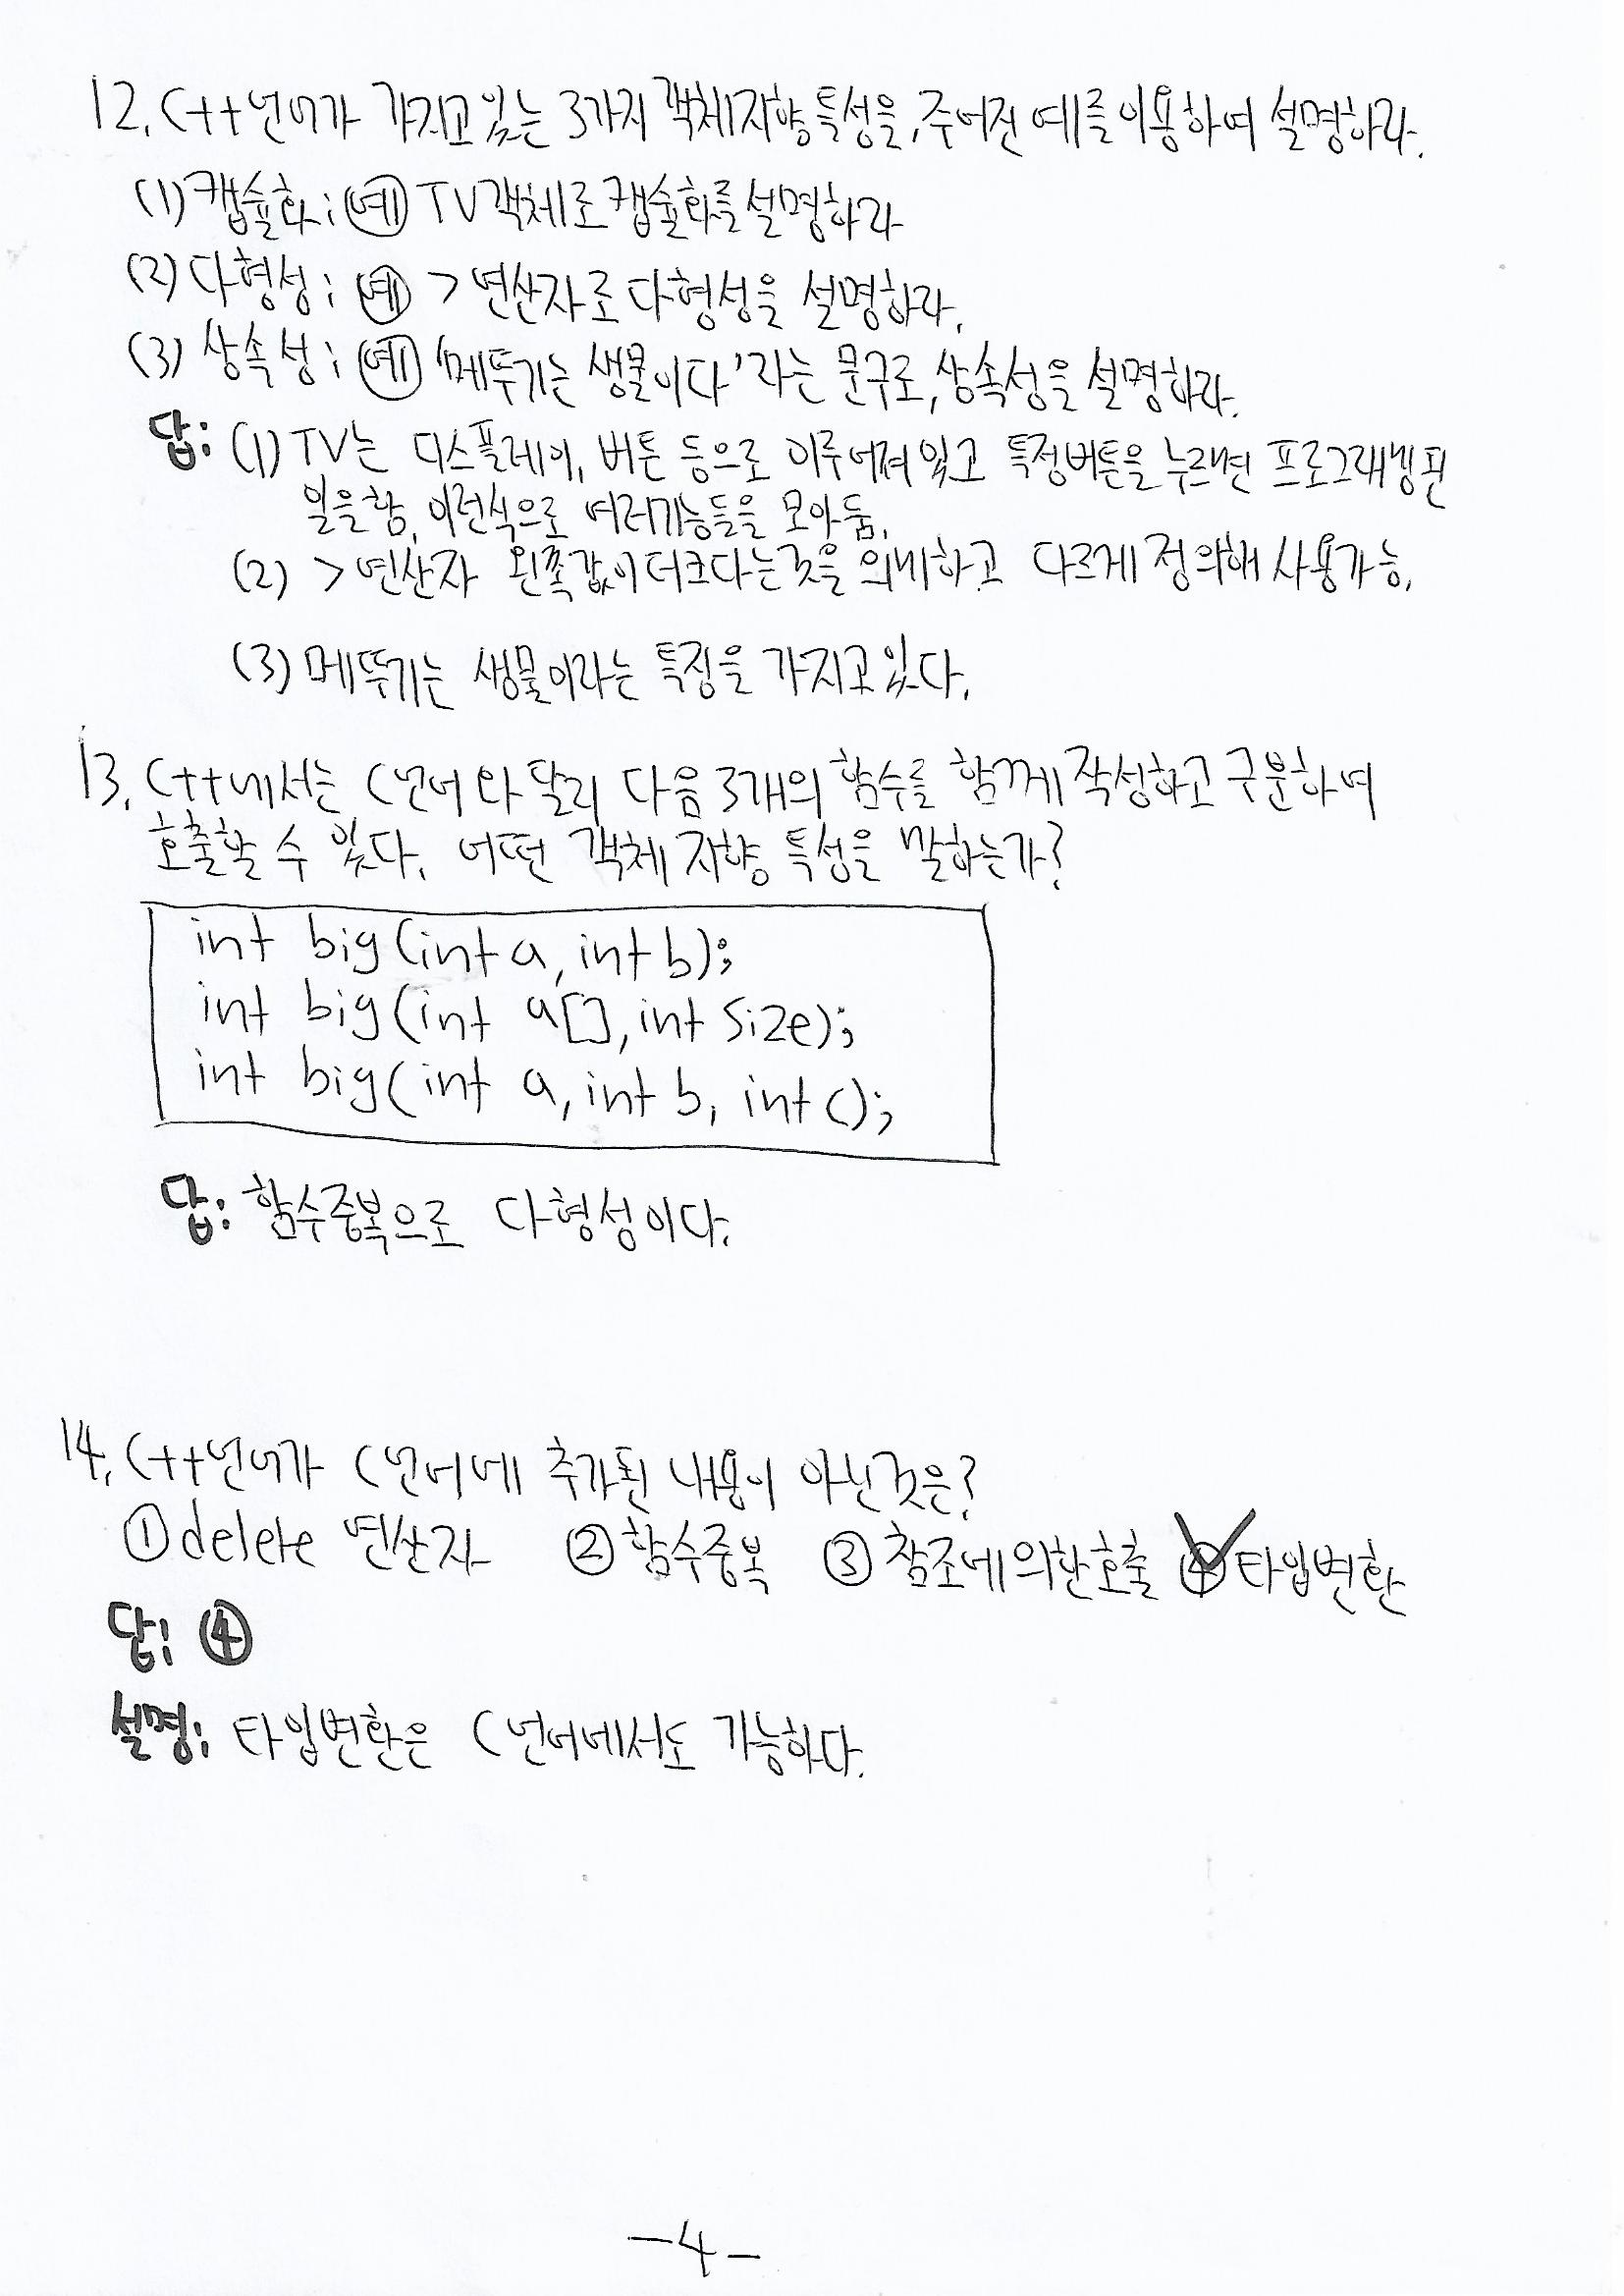 12. C++언어가 가지고 있는 3가지 객체지향 특성을, 주어진 예를 이용하여 설명하라.
(1) 캡슐화: 예 TV 객체로 캡슐화를 설명하라
(2) 다형성: 예 > 연산자로 다형성을 설명하라.
(3) 상속성: 예 '메뚜기는 생물이다'라는 문구로, 상속성을 설명하라.
답: (1) TV는 디스플레이, 버튼 등으로 이루어져 있고 특정버튼을 누르면 프로그래밍 된
일을 함. 이런식으로 여러기능들을 모아둠.
(2) > 연산자 왼쪽값이 더크다는것을 의미하고 다르게 정의해 사용가능.
(3) 메뚜기는 생물이라는 특징을 가지고 있다.
13. C++에서는 C언어와 달리 다음 3개의 함수를 함께 작성하고 구분하여
호출할 수 있다. 어떤 객체 지향 특성을 말하는가?
int big(int a, int b);
int big(int a[], int size);
int big(int a, int b, int c);
답: 함수중복으로 다형성이다.
14. C++언어가 C언어에 추가된 내용이 아닌것은?
① delete 연산자 ② 함수중복 ③ 참조에 의한 호출 ④ 타입변환
답: ④
설명: 타입변환은 C언어에서도 가능하다.
-4-